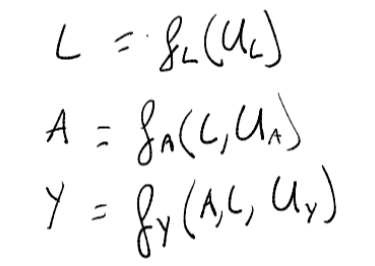 L = f_L(U_L)
A = f_A(L, U_A)
Y = f_Y(A, L, U_Y)